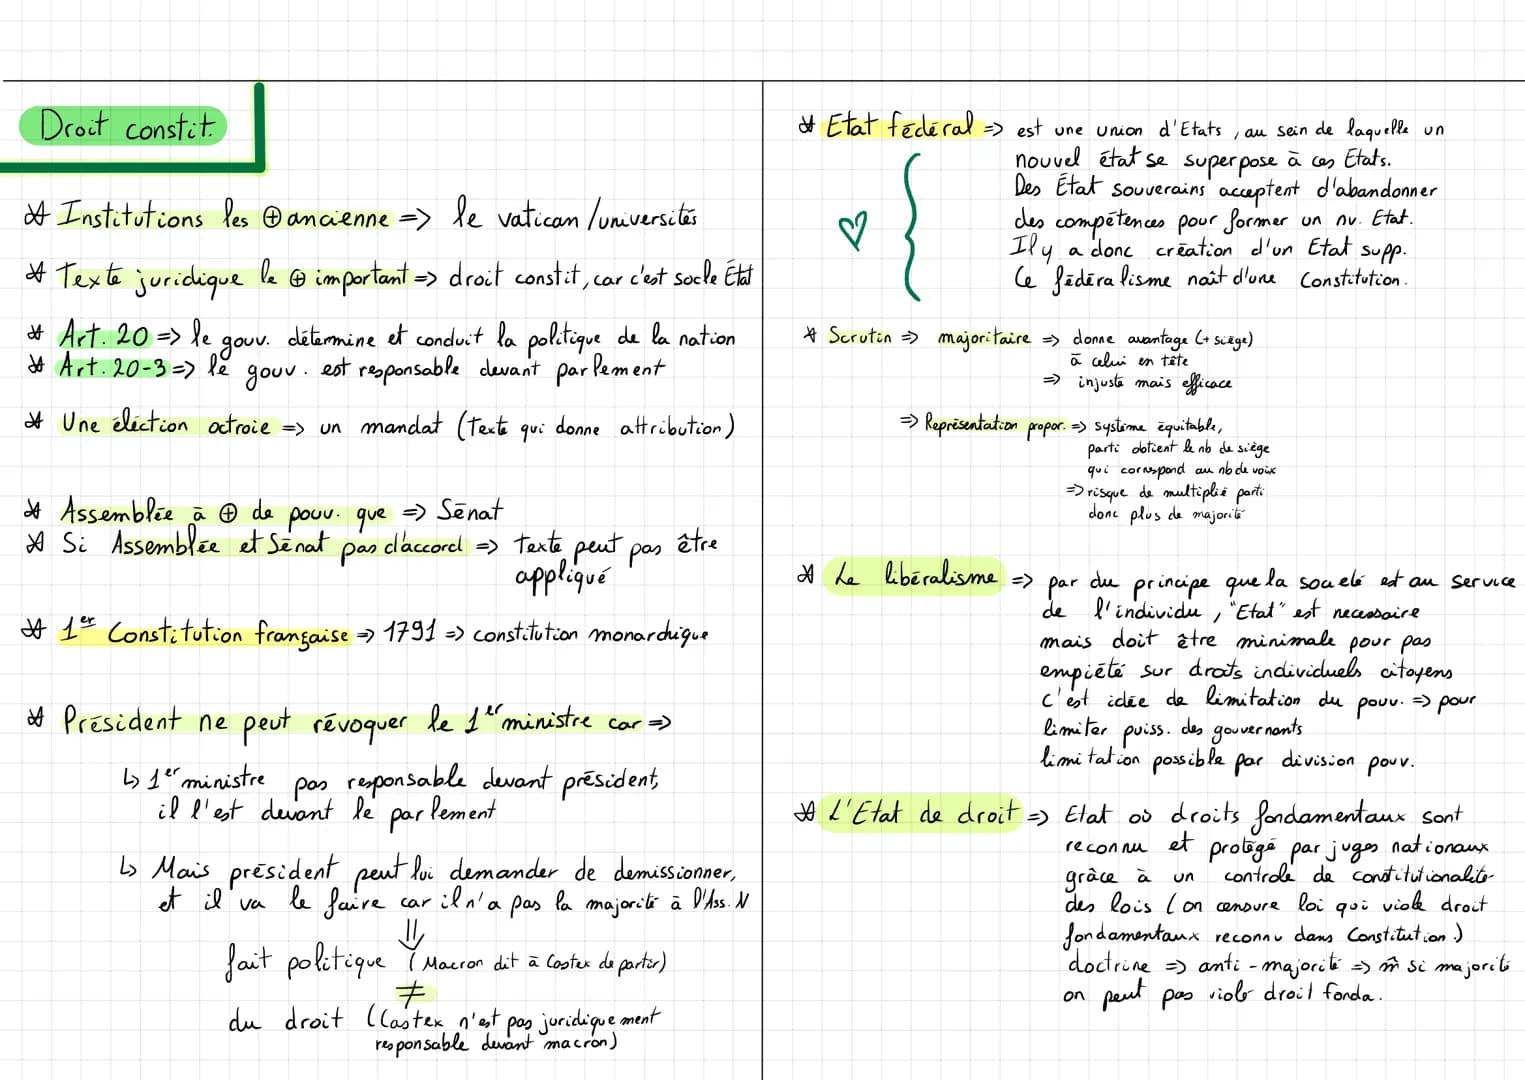 Droit constit.
Institutions les ⊕ ancienne => le vatican / universités
Texte juridique le ⊕ important => droit constit, car c'est socle État
Art. 20 => le gouv. détermine et conduit la politique de la nation
Art. 20-3 => le gouv. est responsable devant parlement
Une éléction octroie => un mandat (texte qui donne attribution)
Assemblée à ⊕ de pouv. que => Sénat
Si Assemblée et Sénat pas d'accord => texte peut pas être
appliqué
1er Constitution française => 1791 => constitution monarchique
Président ne peut révoquer le 1er ministre car =>
↳ 1er ministre pas responsable devant président,
il l'est devant le parlement
↳ Mais président peut lui demander de demissionner,
et il va le faire car il n'a pas la majorité à l'Ass. N
⇓
fait politique (Macron dit à Castex de partir)
≠
du droit (Castex n'est pas juridiquement
responsable devant macron)
Etat fédéral => est une union d'Etats, au sein de laquelle un
nouvel état se superpose à ces États.
Des État souverains acceptent d'abandonner
des compétences pour former un nv. Etat.
Il y a donc création d'un Etat supp.
Ce fédéralisme naît d'une Constitution.
Scrutin => majoritaire => donne avantage (+ siège)
à celui en tête
=> injuste mais efficace
=> Représentation propor. => système équitable,
parti obtient le nb de siège
qui correspond au nb de voix
=> risque de multiplié parti
donc plus de majorité
Le libéralisme => par du principe que la société est au service
de l'individu, "Etat" est necessaire
mais doit être minimale pour pas
empiété sur droits individuels citoyens
c'est idée de limitation du pouv. => pour
limiter puiss. des gouvernants
limitation possible par division pouv.
L'Etat de droit => Etat où droits fondamentaux sont
reconnu et protégé par juges nationaux
grâce à un controle de constitutionalité
des lois (on censure loi qui viole droit
fondamentaux reconnu dans Constitution.)
doctrine => anti-majorité => m̂ si majorité
on peut pas violer droit fonda.